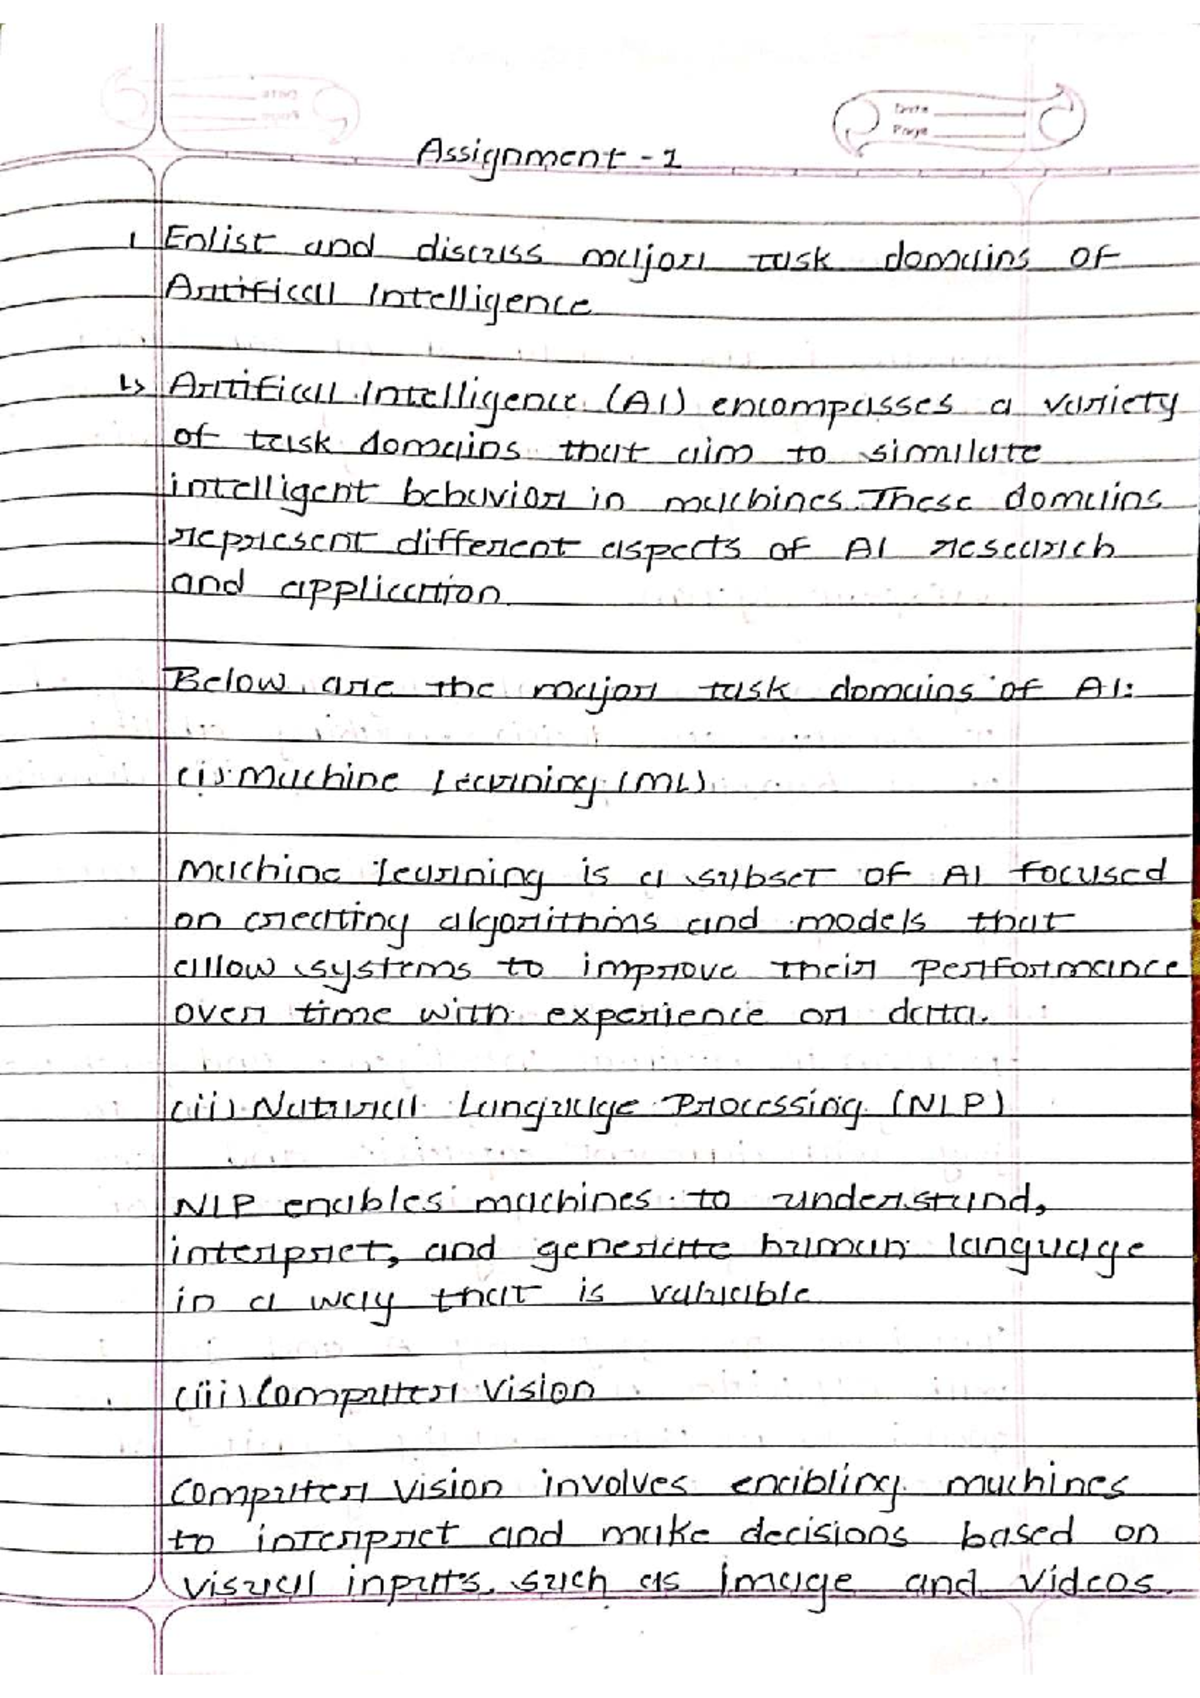 Date
Page
Assignment - 1
1. Enlist and discuss major task domains of
Artifical Intelligence
↳ Artifical Intelligence (AI) encompasses a variety
of task domains that aim to simulate
intelligent behavior in machines. These domains
represent different aspects of AI research
and application.
Below are the major task domains of AI:
(i) Machine Learning (ML)
Machine learning is a subset of AI focused
on creating algorithms and models that
allow systems to improve their performance
over time with experience or data.
(ii) Natural Language Processing (NLP)
NLP enables machines to understand,
interpret, and generate human language
in a way that is valuable
(iii) Computer Vision
Computer vision involves enabling machines
to interpret and make decisions based on
visual inputs, such as image and videos.